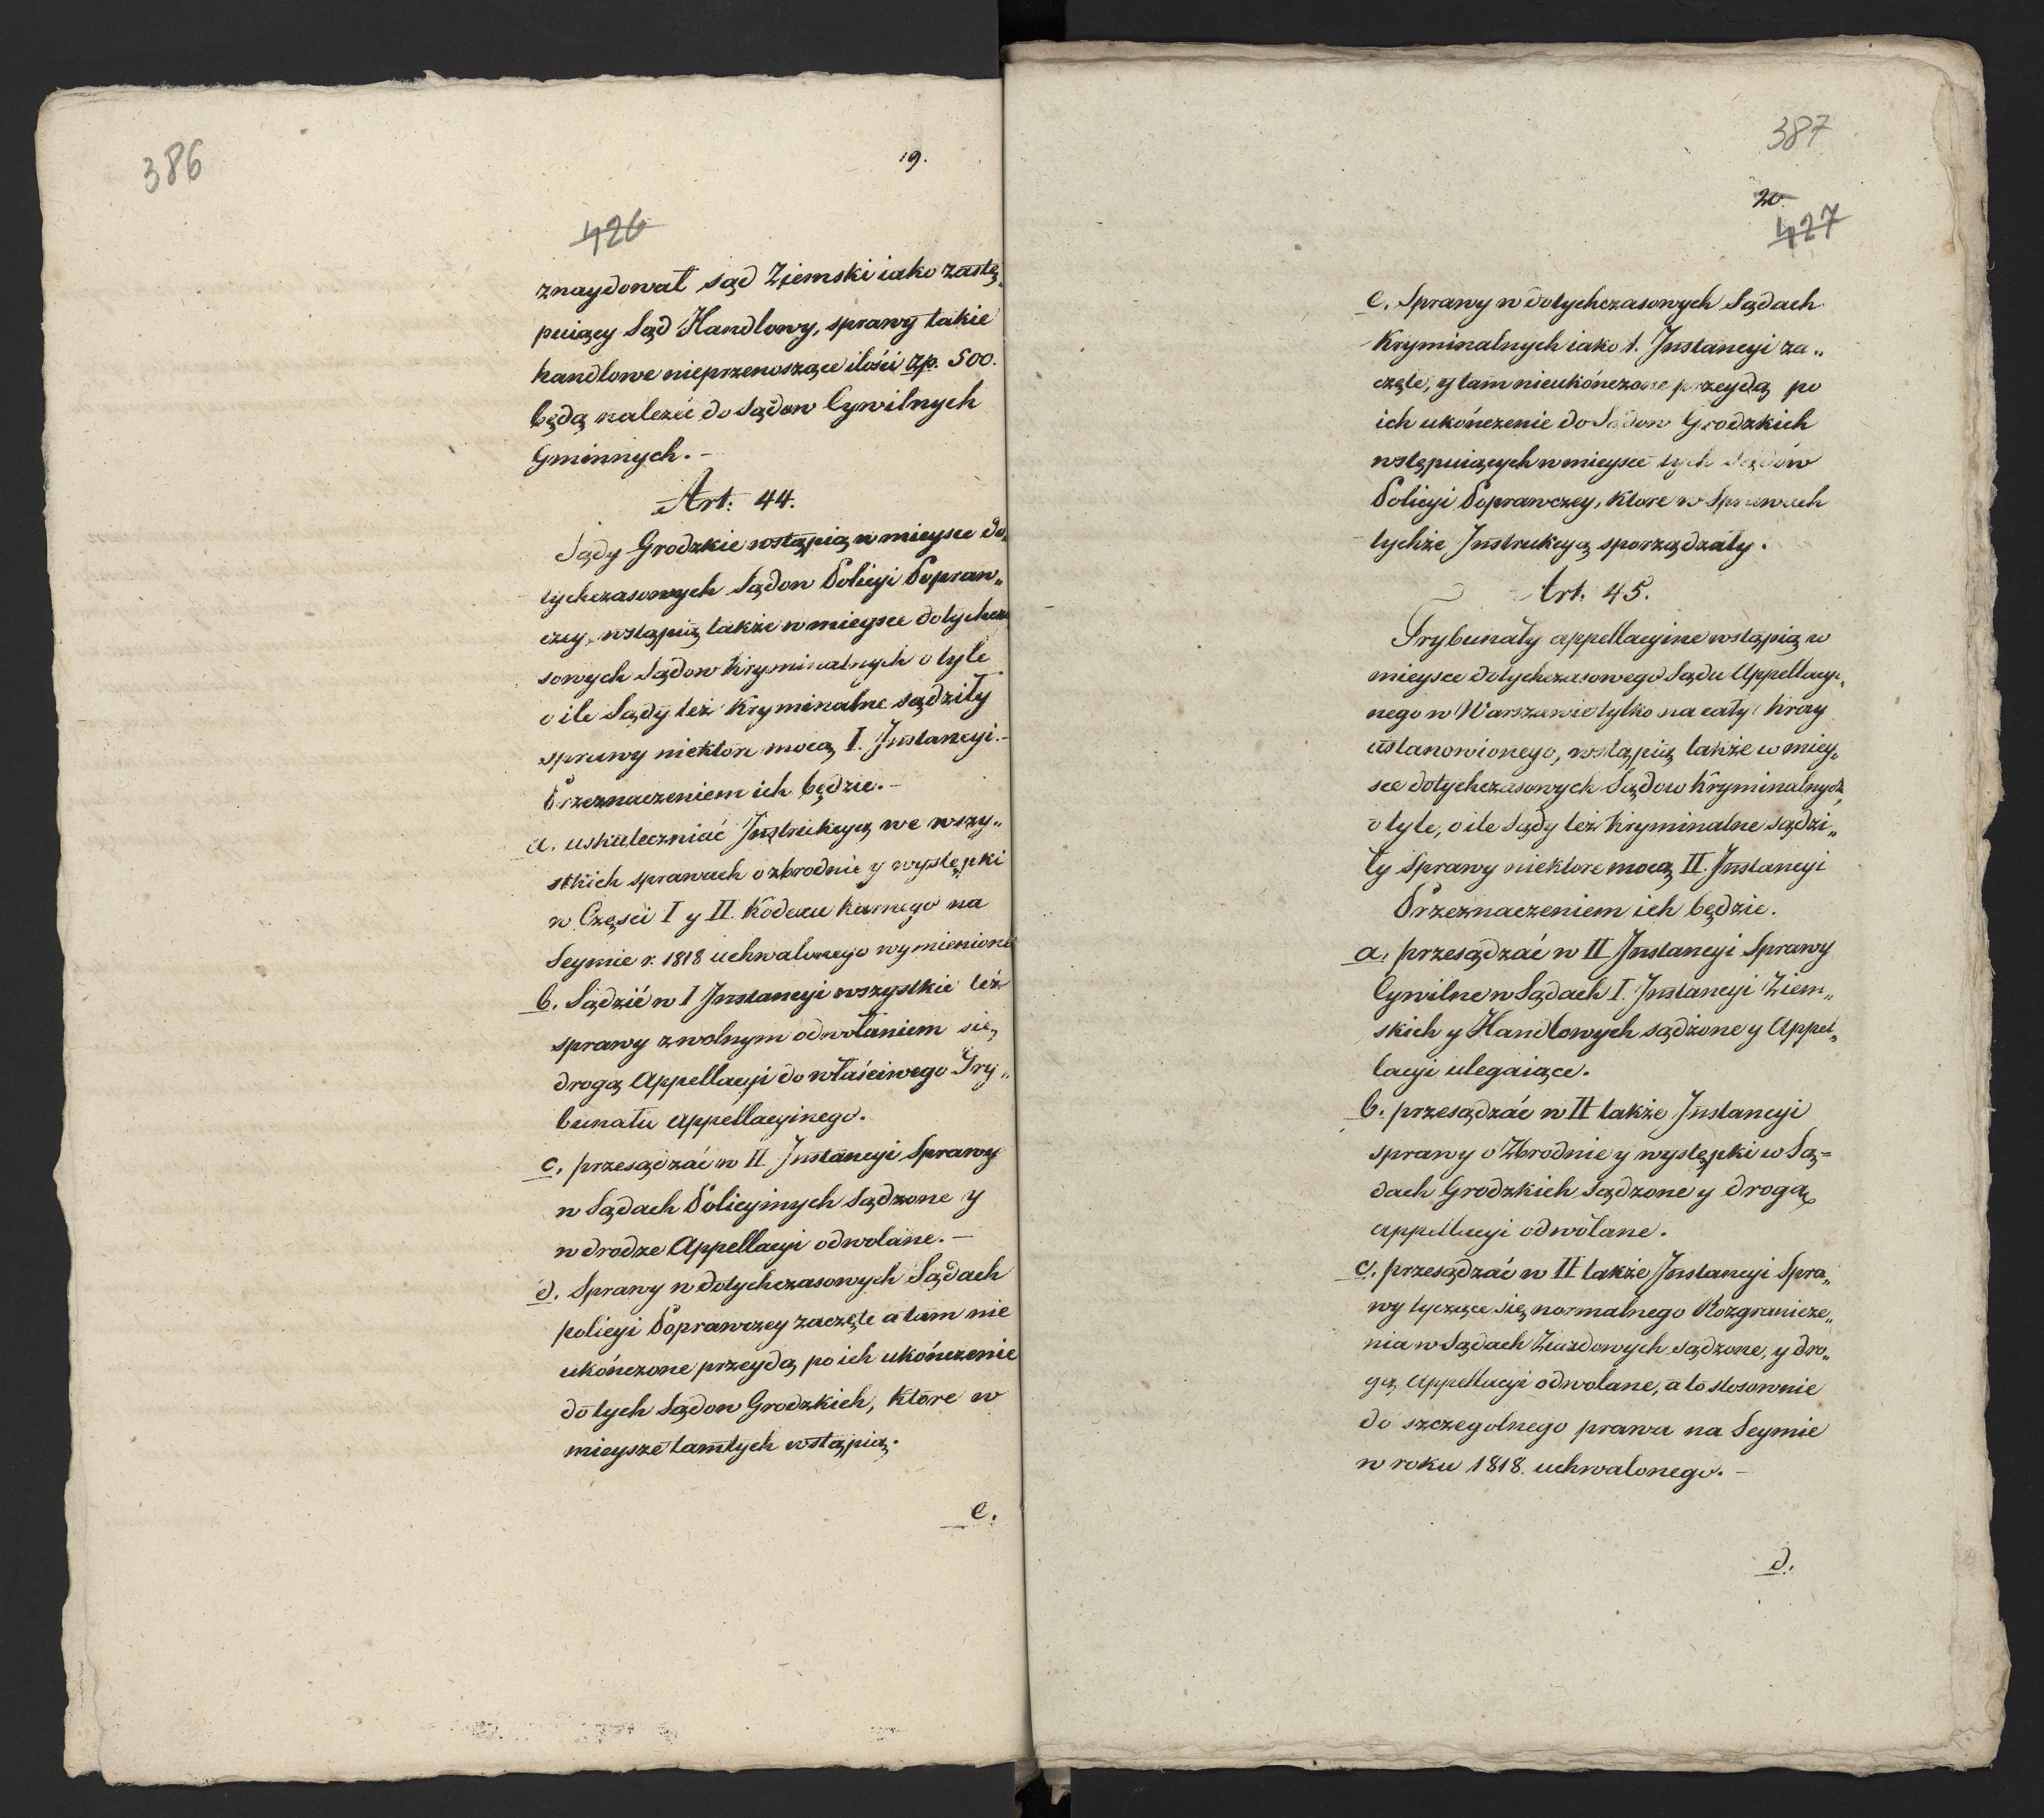 386
19.
426
znaydował sąd Ziemski iako zastę„
puiący Sąd Handlowy, sprawy takie
handlowe nieprzenoszące ilości zp. 500.
będą należeć do Sądow Cywilnych
Gminnych. –
Art: 44.
Sądy Grodzkie wstąpią w mieysce do„
tychczasowych Sądow Policyi Popraw„
czey, wstąpią także w mieysce dotychcza
sowych Sądow Kryminalnych o tyle
o ile Sądy też Kryminalne sądziły
sprawy niektore mocą I. Instancyi. –
Przeznaczeniem ich będzie. –
a. uskuteczniać Instrukcyą we wszy„
stkich sprawach o zbrodnie y występki
w Części I y II. Kodexu Karnego na
Seymie r. 1818 uchwalonego wymienione
b. Sądzić w I Instancyi wszystkie też
sprawy z wolnym odwołaniem się
drogą Appellacyi do właściwego Try„
bunału appellacyinego.
c. przesądzać w II Instancyi Sprawy
w Sądach Policyinych Sądzone y
w drodze Appellacyi odwołane. –
d. Sprawy w dotychczasowych Sądach
policyi Poprawczey zaczęte a tam nie
ukończone przeydą po ich ukończenie
do tych Sądow Grodzkich, ktore w
mieysze tamtych wstąpią.
e.
387
20.
427
e. Sprawy w dotychczasowych Sądach
Kryminalnych iako I. Instancyi za„
częte, y tam nieukończone przeydą po
ich ukończenie do Sądow Grodzkich
wstępuiących w mieysce tych Sądów
Policyi Poprawczey, ktore w Sprawach
tychże Instrukcyą sporządzały.
Art. 45.
Trybunały appellacyine wstąpią w
mieysce dotychczasowego Sądu Appellacyi„
nego w Warszawie tylko na cały Kray
ustanowionego, wstąpią także w miey„
sce dotychczasowych Sądow Kryminalnych,
o tyle, o ile Sądy też Kryminalne sądzi„
ły Sprawy niektore mocą II. Instancyi
Przeznaczeniem ich będzie.
a. przesądzać w II Instancyi Sprawy
Cywilne w Sądach I. Instancyi Ziem„
skich y Handlowych sądzone y Appel„
lacyi ulegaiące.
b. przesądzać w II także Instancyi
sprawy o Zbrodnie y występki w Są=
dach Grodzkich Sądzone y drogą
appellacyi odwołane.
c. przesądzać w II także Instancyi Spra„
wy tyczące się normalnego Rozgranicze„
nia w Sądach Ziazdowych sądzone, y dro„
gą Appellacyi odwołane, a to stosownie
do szczegolnego prawa na Seymie
w roku 1818. uchwalonego. –
d.